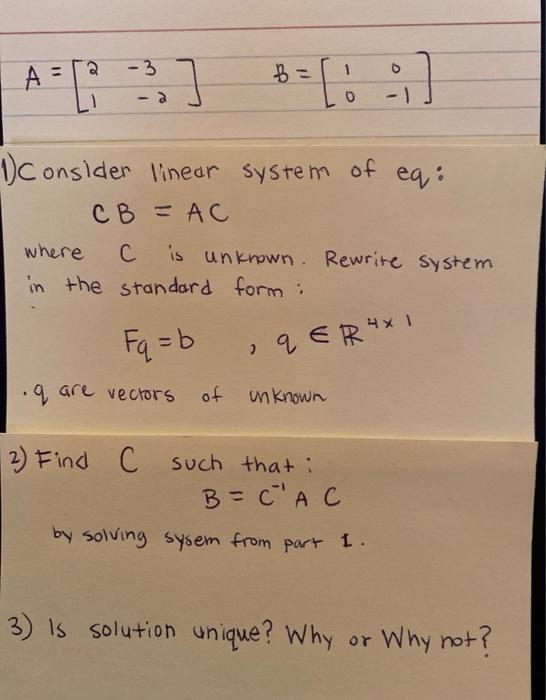 A = [2 -3   B = [1 0
1 -2]   0 -1]
1) Consider linear system of eq:
CB = AC
where C is unknown. Rewrite system
in the standard form:
Fq = b , q ∈ ℝ⁴ˣ¹
• q are vectors of unknown
2) Find C such that:
B = C⁻¹ A C
by solving sysem from part 1.
3) Is solution unique? Why or Why not?